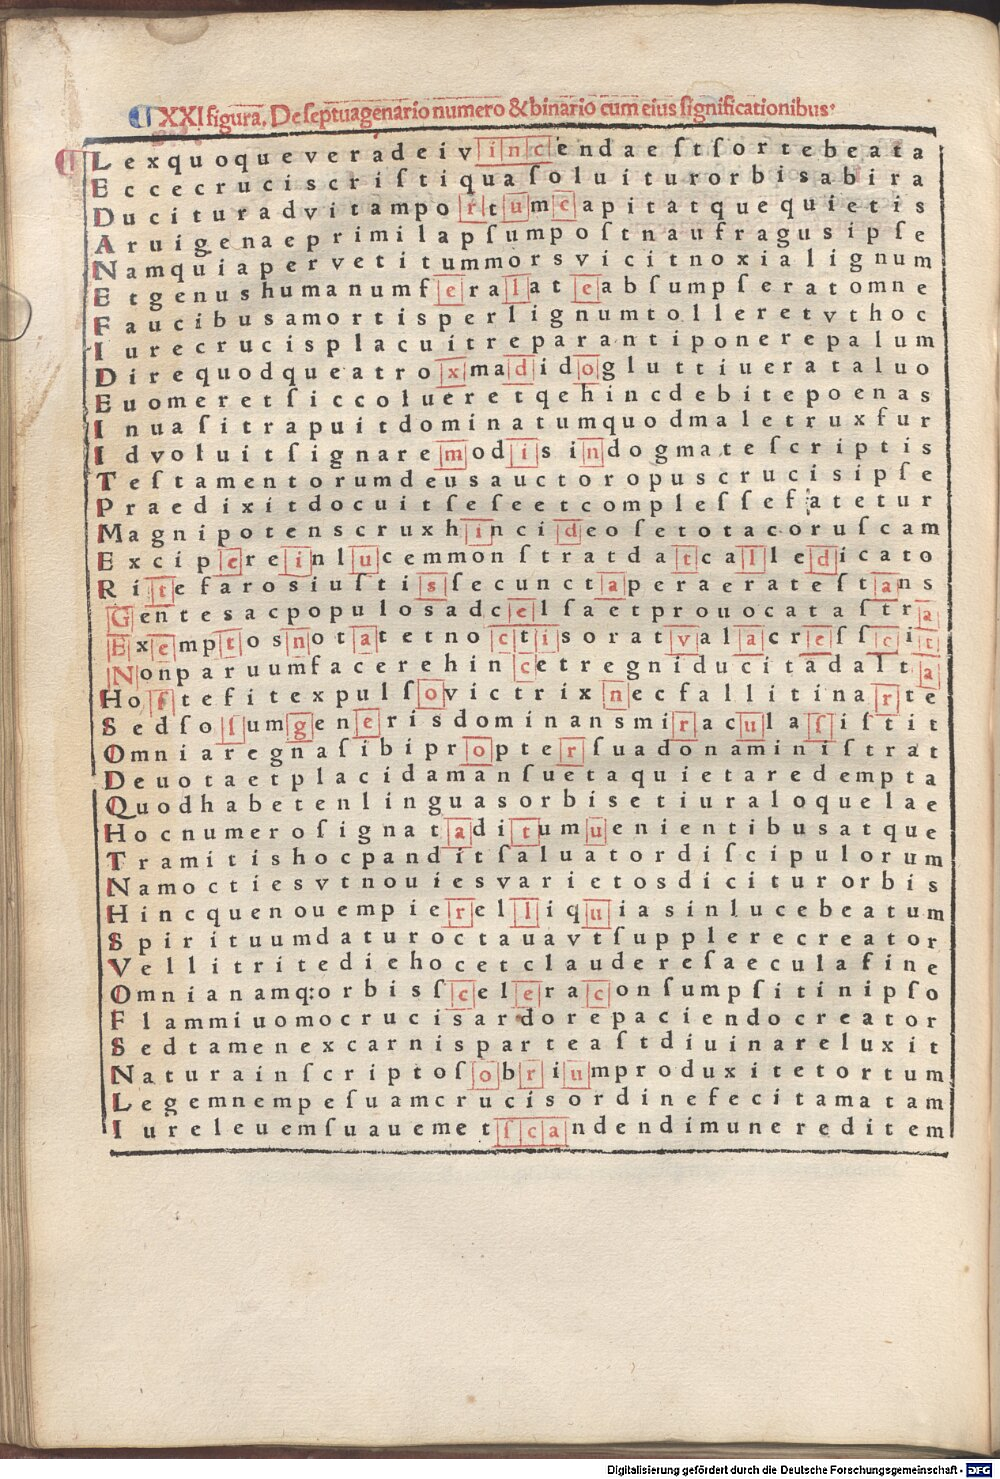 XXI figura. De septuagenario numero & binario cum eius significationibus·
Lexquoqueveradeivincendaeſtſortebeata
Eccecruciscriſtiquaſoluiturorbisabira
Ducituradvitamportumcapitatquequietis
Aruigenaeprimilapſumpoſtnaufragusipſe
Namquiapervetitummorsvicitnoxialignum
Etgenushumanumferalateabſumpſeratomne
Faucibusamortisperlignumtolleretvthoc
Iurecrucisplacuitreparantiponerepalum
Direquodqueatroxmadidogluttiuerataluo
Euomeretſiccolueretqehincdebitepoenas
Inuaſitrapuitdominatumquodmaletruxfur
Idvoluitſignaremodisindogmateſcriptis
Teſtamentorumdeusauctoropuscrucisipſe
Praedixitdocuitſeſeetcomplefſefatetur
Magnipotenscruxhincideoſetotacoruſcam
Excipereinlucemmonſtratdatcalledicato
Ritefarosiuſtisſecunctaperaerateſtans
Gentesacpopulosadcelſaetprouocataſtra
Exemptosnotatetnoctisoratvalacreſſcit
Nonparuumfacerehincetregniducitadalta
Hoſtefitexpulſovictrixnecfallitinarte
Sedſoſumgenerisdominansmiraculaſiſtit
Omniaregnaſibipropterſuadonaminiſtrat
Deuotaetplacidamanſuetaquietaredempta
Quodhabetenlinguasorbisetiuraloquelae
Hocnumeroſignataditumuenientibusatque
Tramitishocpanditſaluatordiſcipulorum
Namoctiesvtnouiesvarietosdiciturorbis
Hincquenouempierelliquiasinlucebeatum
Spirituumdaturoctauavtſupplerecreator
Vellitritediehocetclaudereſaeculafine
Omnianamq:orbisſceleraconſumpſitinipſo
Flammiuomocrucisardorepaciendocreator
Sedtamenexcarnisparteaſtdiuinareluxit
Naturainſcriptoſobriumproduxitetortum
Legemnempeſuamcrucisordinefecitamatam
Iureleuemſuauemetſcandendimunereditem
Digitalisierung gefördert durch die Deutsche Forschungsgemeinschaft - DFG